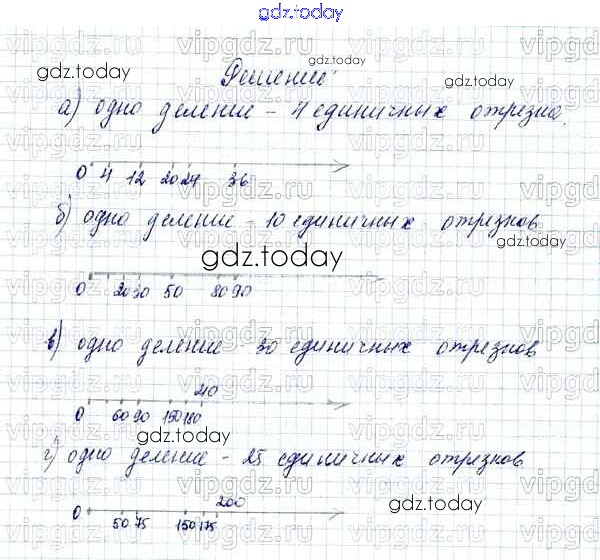 gdz.today
Решение:
а) одно деление - 4 единичных отрезка.
0 4 12 20 24 36
б) одно деление - 10 единичных отрезков
0 20 30 50 80 90
в) одно деление - 30 единичных отрезков
210
0 60 90 150 180
г) одно деление - 25 единичных отрезков
200
0 50 75 150 175
gdz.today
gdz.today
gdz.today
gdz.today
gdz.today
gdz.today
gdz.today
gdz.today
vipgdz.ru